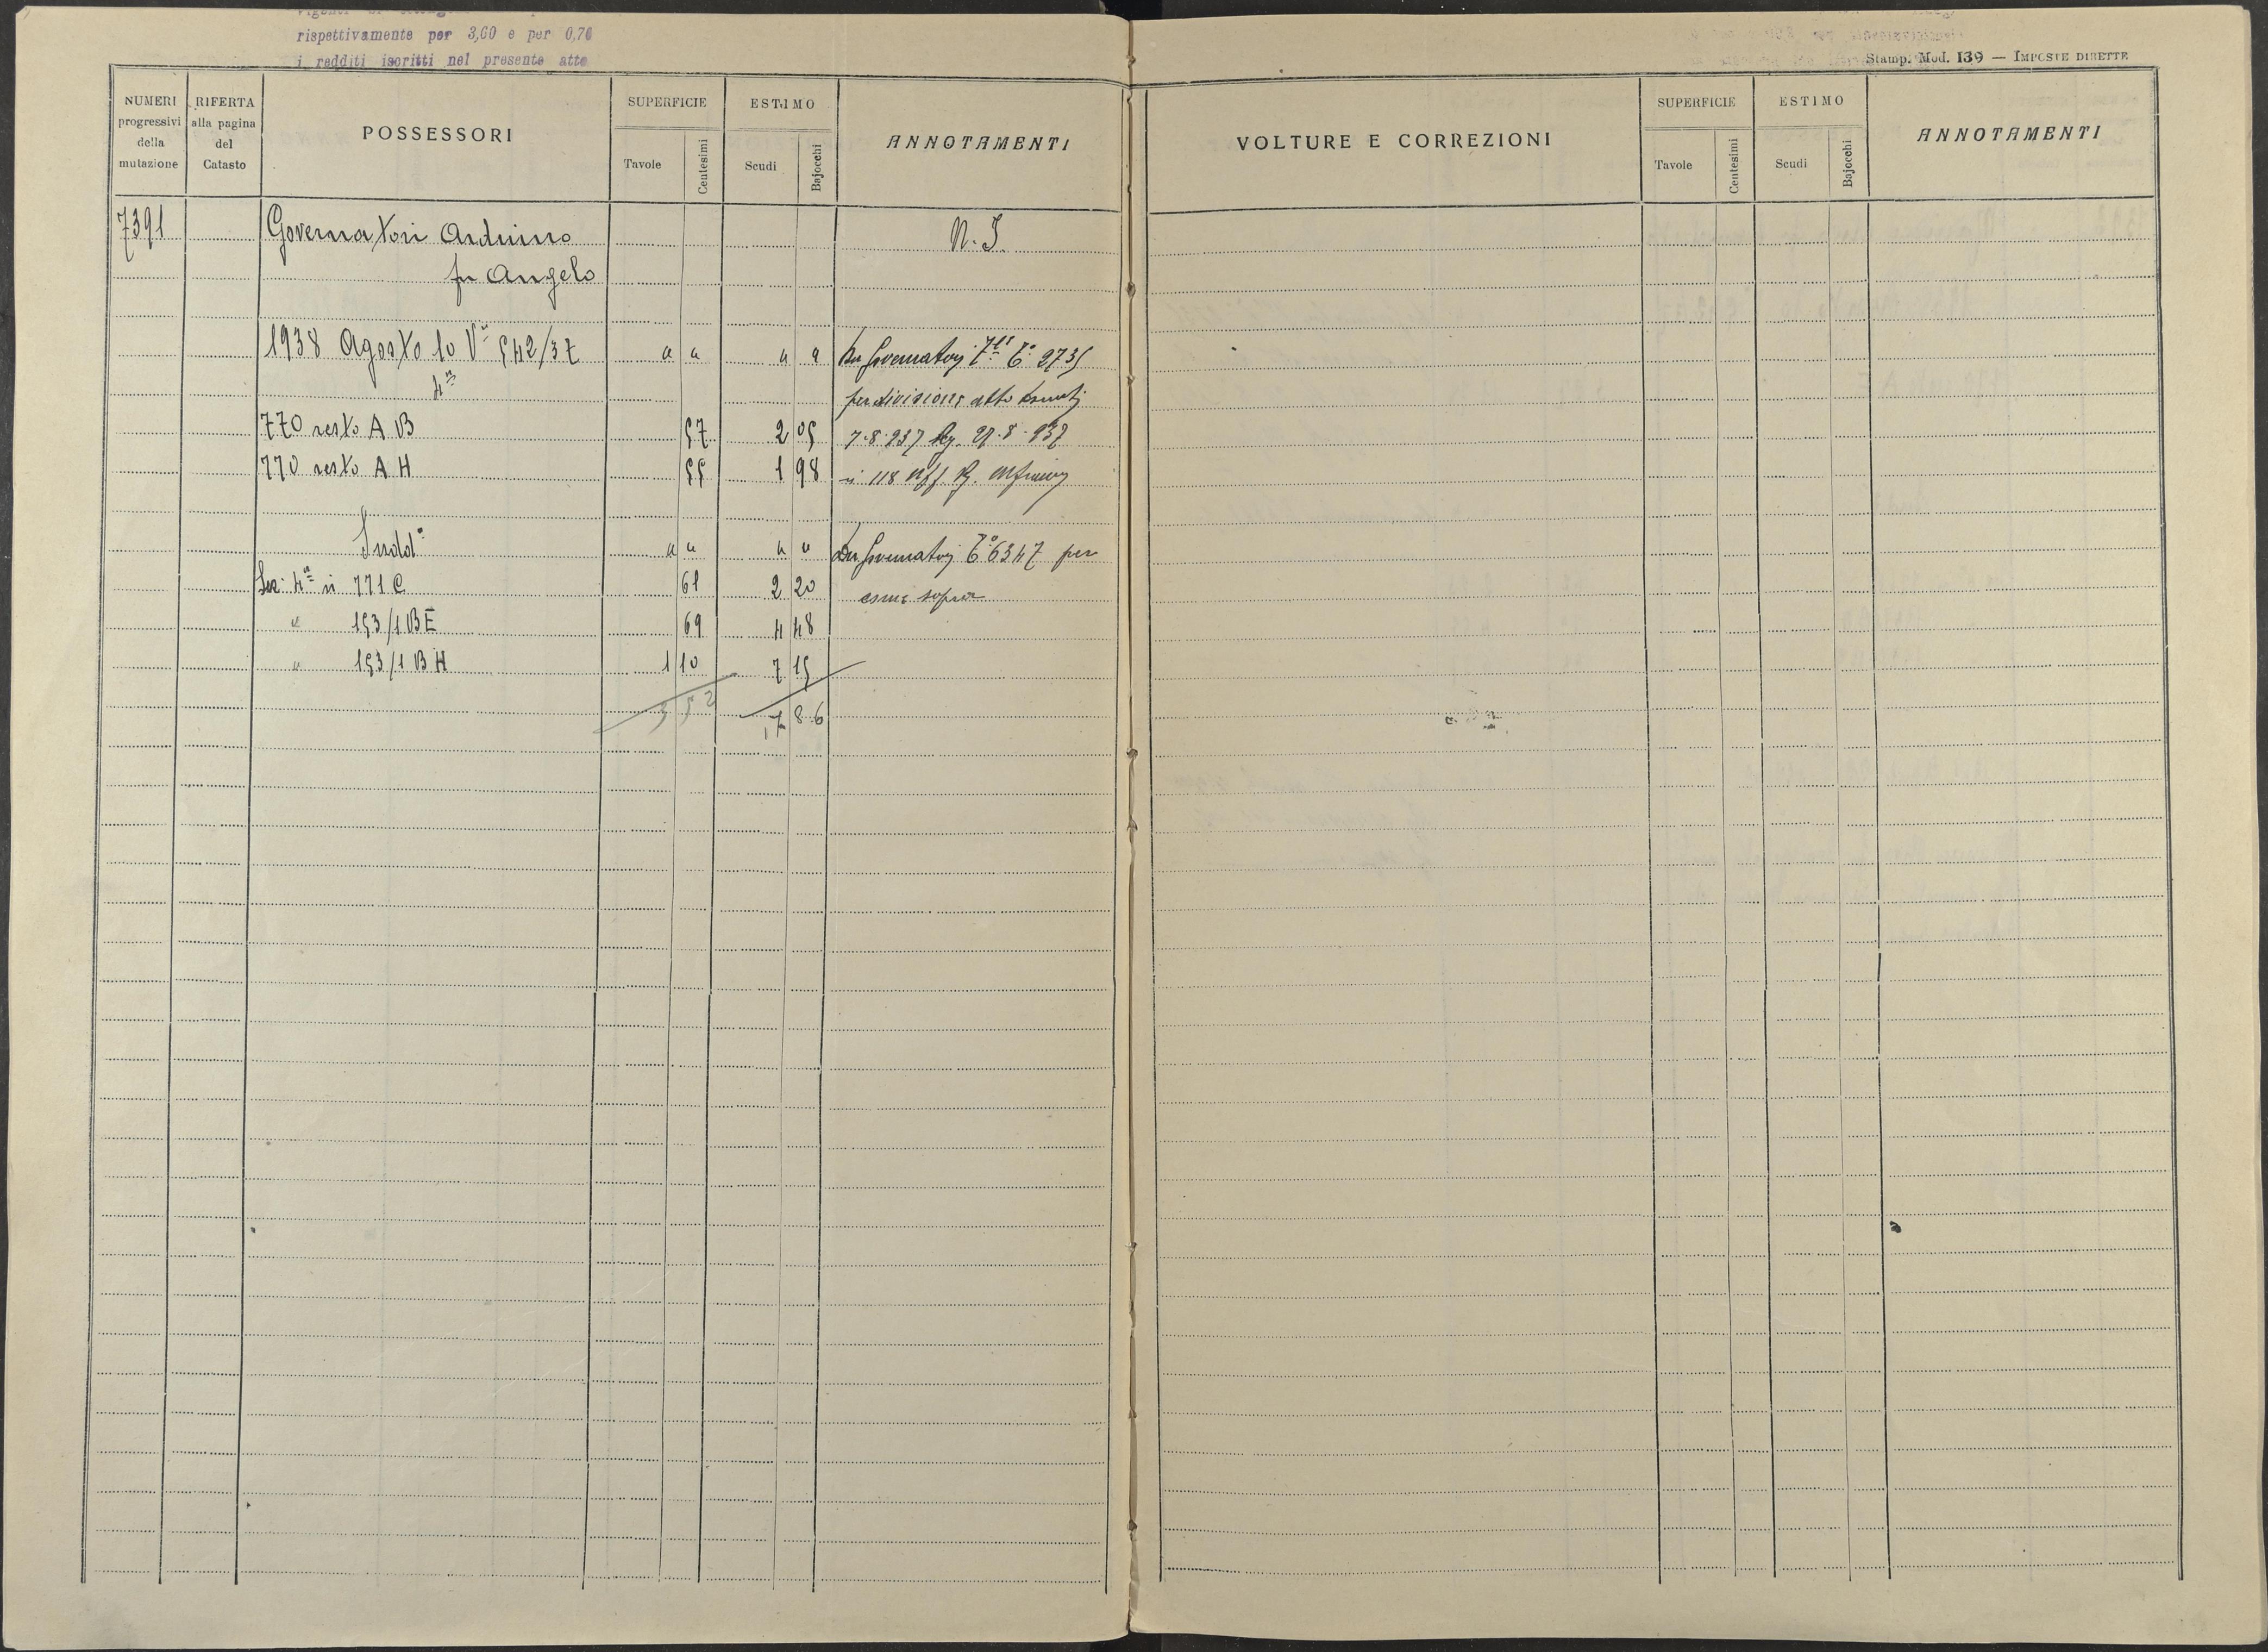 rispettivamente per 3,60 e per 0,70
i redditi iscritti nel presente atto
NUMERI progressivi della mutazione
RIFERTA alla pagina del Catasto
POSSESSORI
SUPERFICIE
Tavole
Centesimi
ESTIMO
Scudi
Bajocchi
ANNOTAMENTI
7391 Governatori Arduino N. I.
fu Angelo
1938 Agosto 10 V° 542/37 " " " " Da Governatori 7391 C° 2735
4ª per divisione atto
770 resto A B 57 2 05 7.8.937 Reg. 27.8.937
770 resto A H 55 1 98 n 118 Uff. Reg.
Sudd° " " " " Da Governatori C° 6347 per
Sez. 4ª n 771 C 61 2 20 come sopra
" 153/1 B E 69 4 48
" 153/1 B H 1 10 7 15
3 52 17 86
Stamp. Mod. 139 — IMPOSTE DIRETTE
VOLTURE E CORREZIONI
SUPERFICIE
Tavole
Centesimi
ESTIMO
Scudi
Bajocchi
ANNOTAMENTI